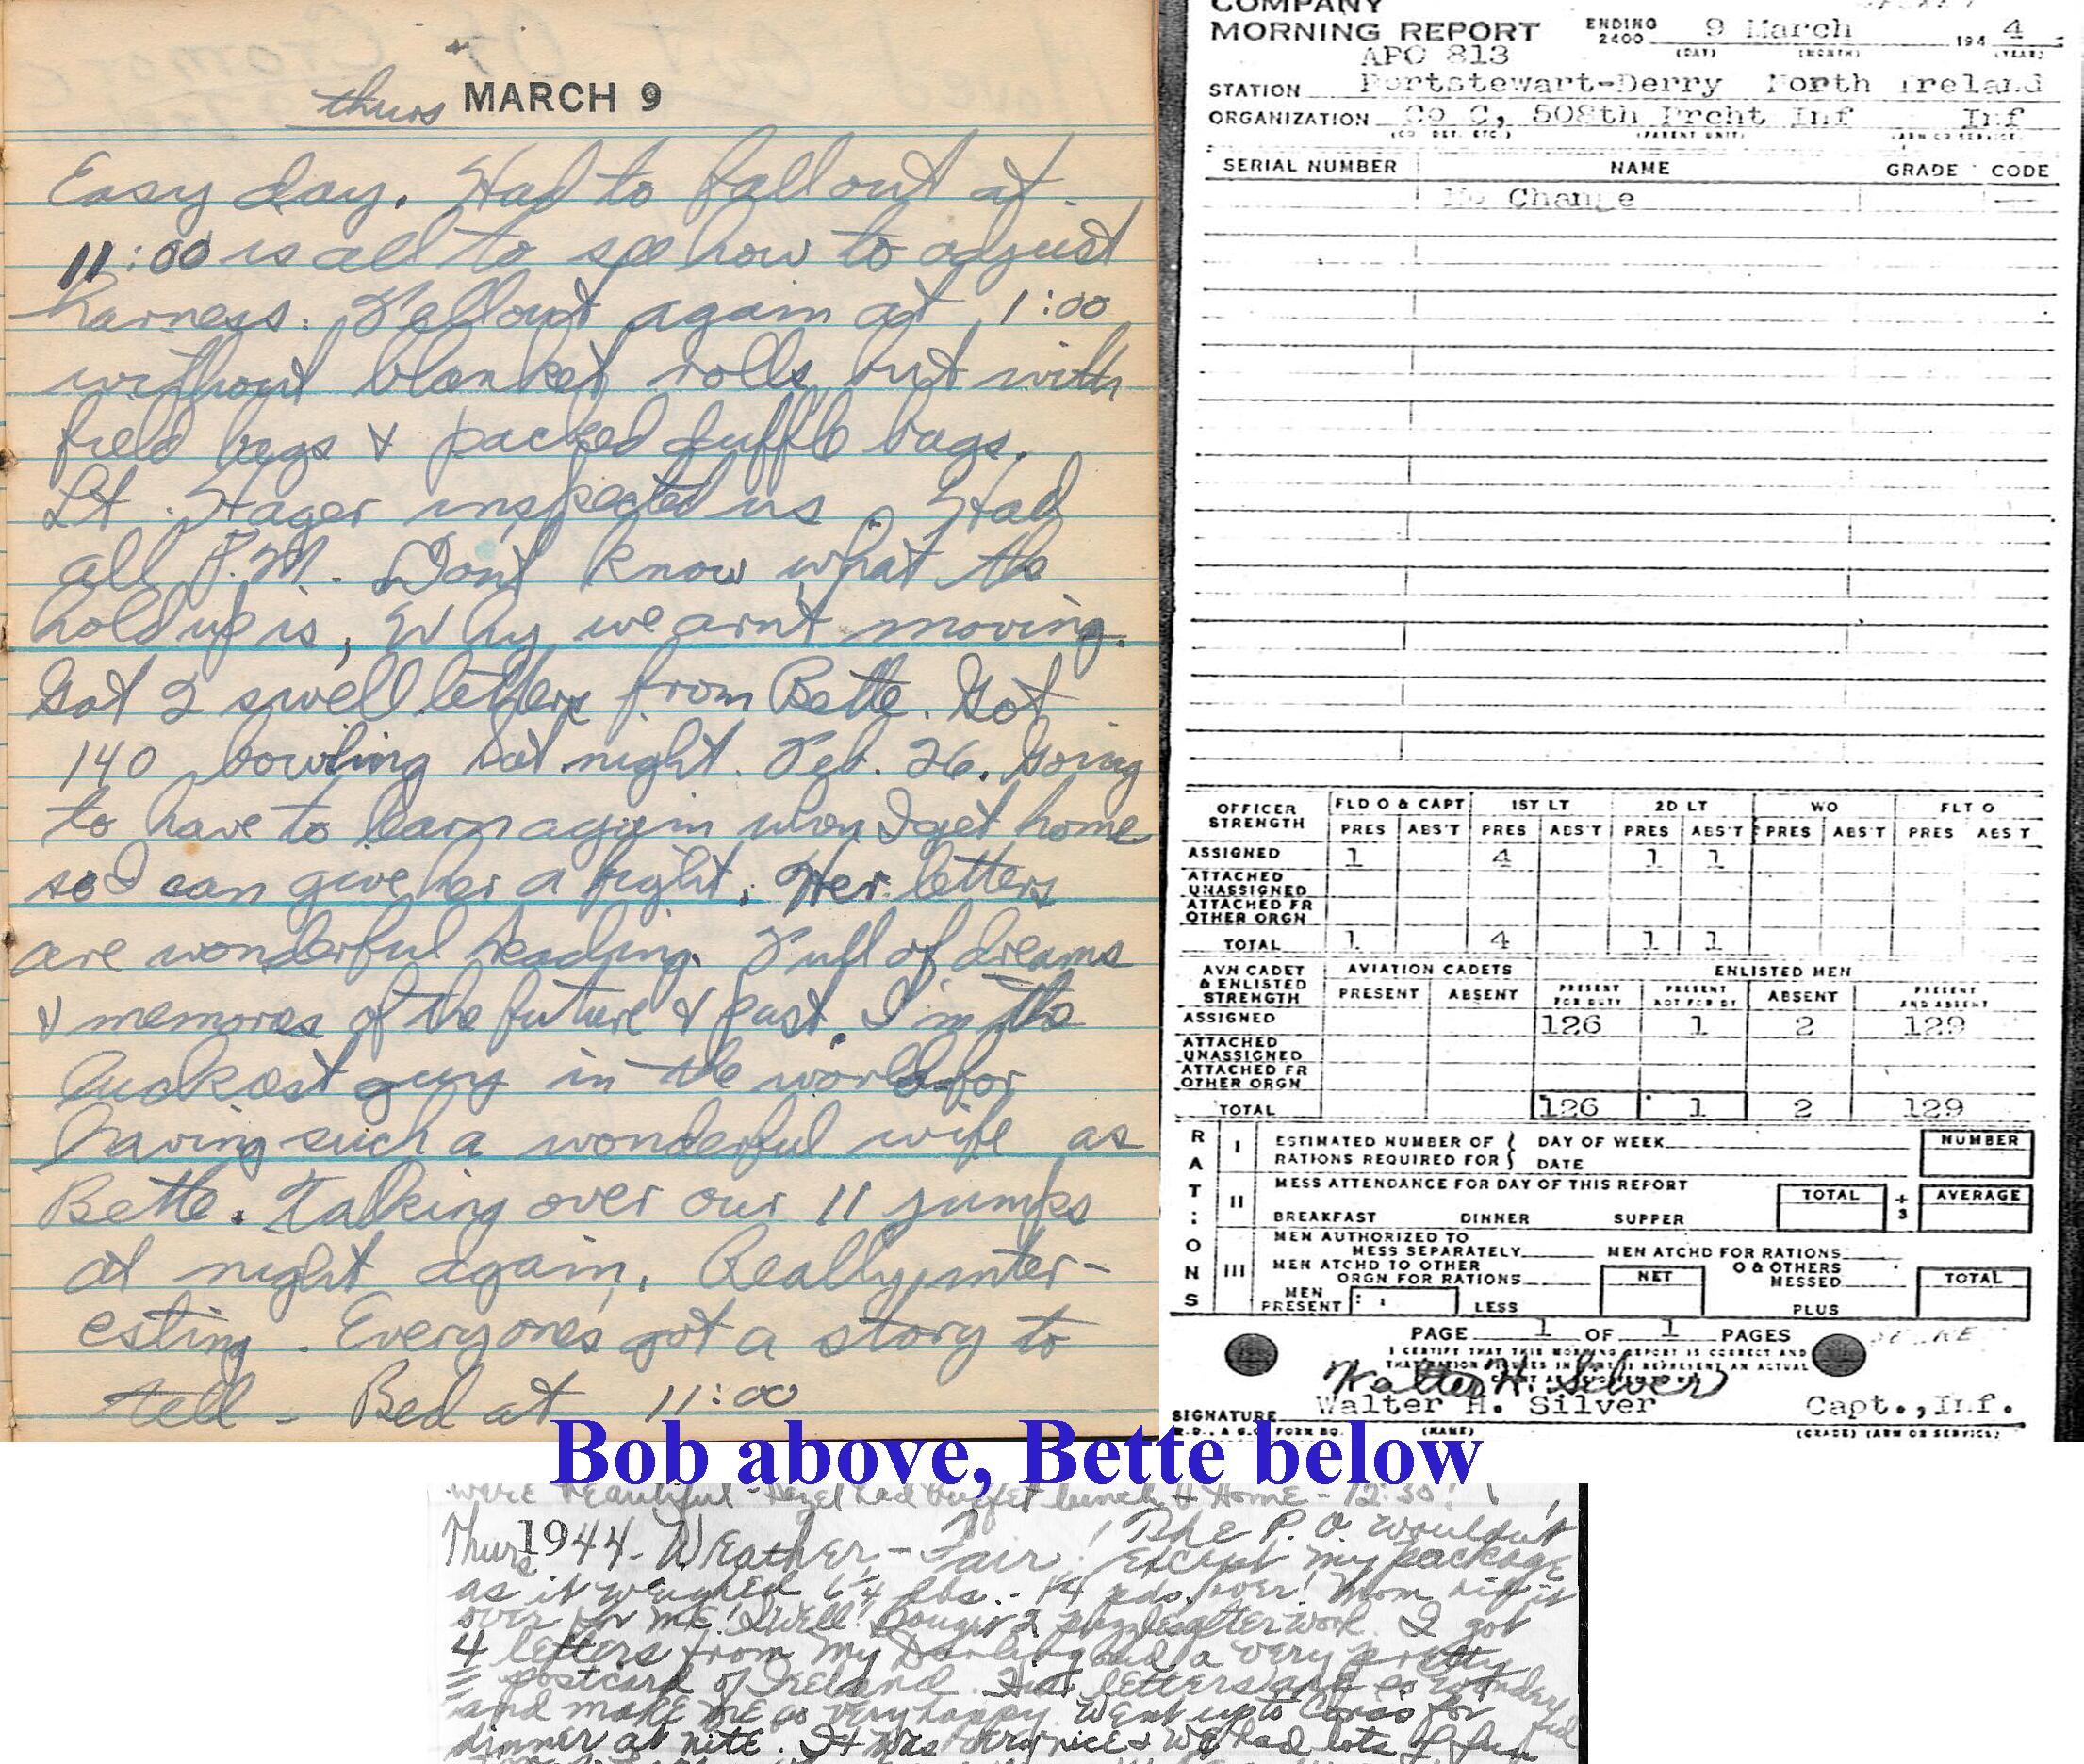 thurs MARCH 9
Easy day. Had to fall out at
11:00 is all to see how to adjust
harness. Fall out again at 1:00
without blanket rolls but with
field bags & packed duffle bags.
Lt. Hager inspected us. Had
all P.M. Dont know what the
hold up is, Why we arnt moving.
Got 2 swell letters from Bette. Got
140 bowling Sat night. Feb. 26. Going
to have to learn again when I get home
so I can give her a fight. Her letters
are wonderful reading. Full of dreams
& memores of the future & past. I'm the
luckest guy in the world for
having such a wonderful wife as
Bette. Talking over our 11 jumps
at night again. Really inter-
esting. Everyones got a story to
tell - Bed at 11:00
COMPANY
MORNING REPORT ENDING 2400 9 March 194 4
(DAY) (MONTH) (YEAR)
APO 813
STATION Portstewart-Derry North Ireland
ORGANIZATION Co C, 508th Prcht Inf Inf
(CO. DET. ETC.) (PARENT UNIT) (ARM OR SERVICE)
SERIAL NUMBER NAME GRADE CODE
No Change
OFFICER STRENGTH FLD O & CAPT 1ST LT 2D LT WO FLT O
PRES ABS'T PRES ABS'T PRES ABS'T PRES ABS'T PRES ABS T
ASSIGNED 1 4 1 1
ATTACHED
UNASSIGNED
ATTACHED FR
OTHER ORGN
TOTAL 1 4 1 1
AVN CADET & ENLISTED STRENGTH AVIATION CADETS ENLISTED MEN
PRESENT ABSENT PRESENT FOR DUTY PRESENT NOT FOR DY ABSENT PRESENT AND ABSENT
ASSIGNED 126 1 2 129
ATTACHED
UNASSIGNED
ATTACHED FR
OTHER ORGN
TOTAL 126 1 2 129
RATIONS
I ESTIMATED NUMBER OF DAY OF WEEK NUMBER
RATIONS REQUIRED FOR DATE
II MESS ATTENDANCE FOR DAY OF THIS REPORT TOTAL ÷ 3 AVERAGE
BREAKFAST DINNER SUPPER
III MEN AUTHORIZED TO
MESS SEPARATELY MEN ATCHD FOR RATIONS
MEN ATCHD TO OTHER O & OTHERS
ORGN FOR RATIONS NET MESSED TOTAL
MEN PRESENT LESS PLUS
PAGE 1 OF 1 PAGES
I CERTIFY THAT THIS MORNING REPORT IS CORRECT AND
Walter H. Silver
SIGNATURE Walter H. Silver Capt., Inf.
(NAME) (GRADE) (ARM OR SERVICE)
Bob above, Bette below
were beautiful - Hazel had buffet lunch Home - 12:30!
Thurs 1944 - Weather - Fair! The P.O. wouldn't
except my package
as it weighed 6 1/4 lbs. - 1/4 over! Mom
over for me! Swell! Bought 2 puzzles after work. I got
4 letters from my Darling and a very pretty
postcard of Ireland. His letters are so wonderful
and make me so very happy. Went up to for
dinner at nite. It was very nice & we had lots of fun